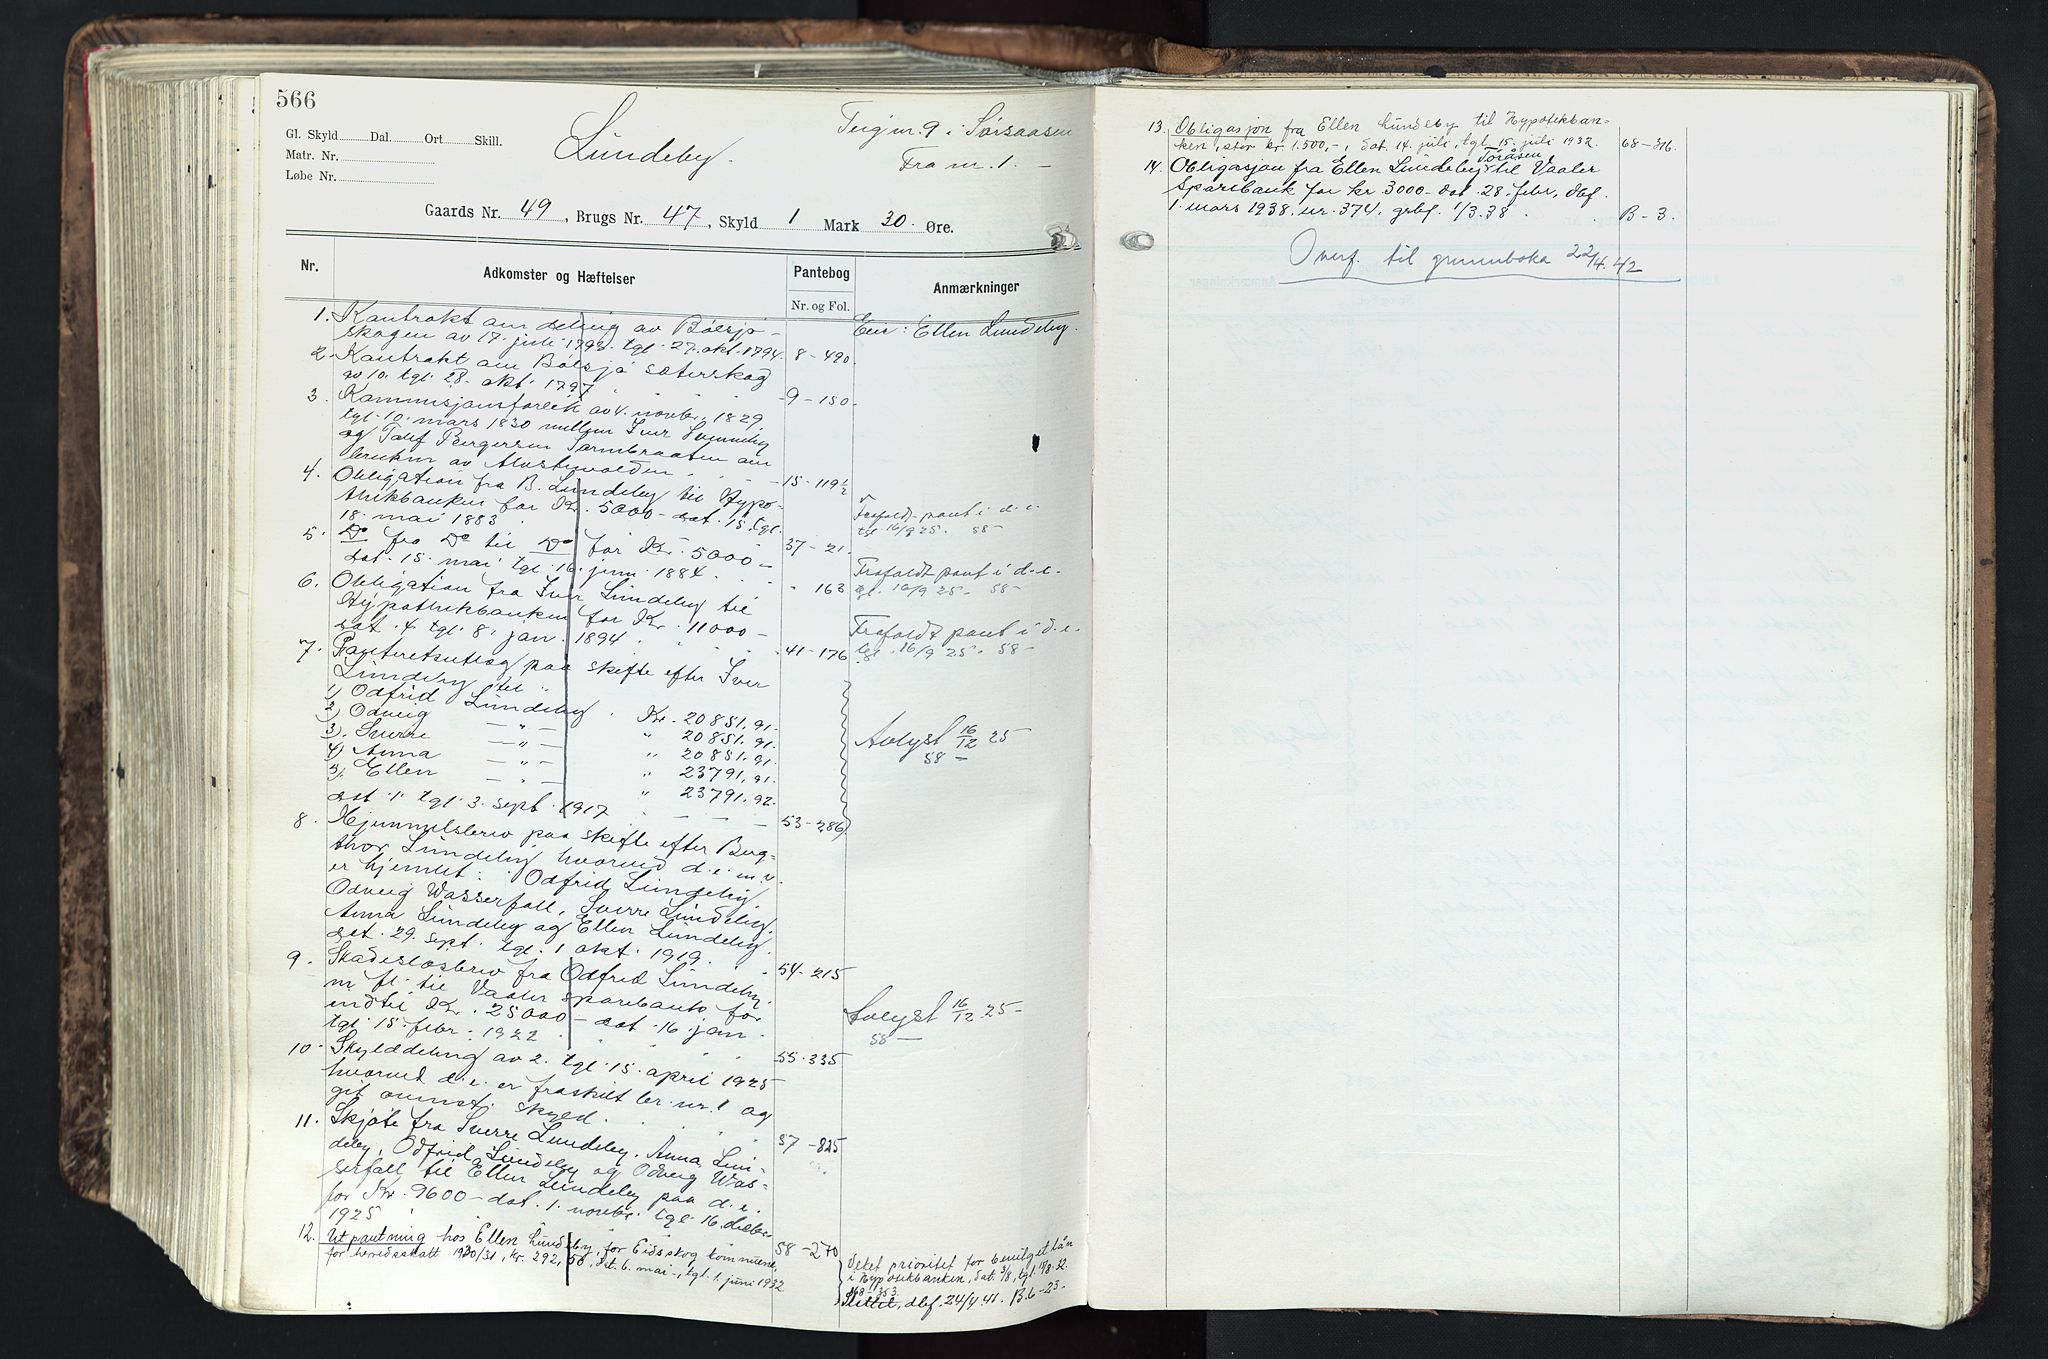 566
Gl. Skyld Dal. Ort Skill.
Matr. Nr.
Løbe Nr.
Lundeby.
Teig nr. 9 i Sørsaasen
Fra nr. 1. —
Gaards Nr. 49, Brugs Nr. 47, Skyld 1 Mark 30. Øre.
Nr. Adkomster og Hæftelser Pantebog Anmærkninger
Nr. og Fol.
1. Kontrakt om deling av Bölsjö-
skogen av 17. juli 1793. tgl. 27. okt. 1794. 8-490
Eier: Ellen Lundeby.
2. Kontrakt om Bölsjö sæterskog
av 10. tgl. 28. okt. 1797 9-150.
3. Kommisjonsforlik av 4. novbr. 1829,
tgl. 10. mars 1830 mellem Iver
og Bergersen om
bruken av 15-119½
4. Obligation fra B. Lundeby til Hypo-
thekbanken for Kr. 5000 - dat. 15. tgl.
18. mai 1883. 37-21.
Frafaldt pant i d. e.
tgl. 16/9 25. 58-
5. Do fra Do til Do for Kr. 5000 -
dat. 15. mai tgl. 16. juni 1884. " 163
Frafaldt pant i d. e.
tgl. 16/9 25. 58-
6. Obligation fra Iver Lundeby til
Hypothekbanken for Kr. 11000 -
dat. 4. tgl. 8. jan. 1894. 41-176
Frafaldt pant i d. e.
tgl. 16/9 25. 58-
7. Panteretsutlog paa skifte efter Iver
Lundeby til
1) Odfrid Lundeby. Kr. 20851.91.
2) Odveig — " — " 20851.91.
3) Sverre — " — " 20851.91.
4) Anna — " — " 23791.91.
5) Ellen — " — " 23791.92.
dat. 1. tgl. 3. sept. 1917 53-286.
Avlyst 16/12 25
58 -
8. Hjemmelsbrev paa skifte efter Berg-
thor Lundeby, hvorved d. e. m. v.
er hjemlet: Odfrid Lundeby,
Odveig Wasserfall, Sverre Lundeby,
Anna Lundeby og Ellen Lundeby
dat. 29. sept. tgl. 1 okt. 1919. 54-215
9. Skadesløsbrev fra Odfrid Lundeby
m. fl. til Vaaler sparebank for
indtil Kr. 25000 - dat. 16. jan.
tgl. 15. febr. 1922 55-335
Avlyst 16/12 25 -
58 —
10. Skylddeling av 2. tgl. 15. april 1925
hvorved d. e. er fraskilt br. nr. 1 og
git anmst. skyld. 57-825
11. Skjøte fra Sverre Lundeby, Anna Lun-
deby, Odfrid Lundeby og Odveig Was-
serfall til Ellen Lundeby paa d. e.
for Kr. 9600 - dat. 1. novbr. tgl. 16. decbr.
1925 58-270
12. Utpantning hos Ellen Lundeby, for Eidsskog kommune,
for herredsskatt 1930/31, kr. 292,50, dat. 6. mai -, tgl. 1. juni 1932
Veket prioritet for bevilget lån
i Hypotekbanken, dat. 3/8, tgl. 11/8-32.
Slettet, dbf. 24/4. 41. B. 6-23-
13. Obligasjon fra Ellen Lundeby til Hypotekban-
ken, stor kr. 1.500,-, dat. 14. juli, tgl. 15. juli 1932. 68-316.
14. Obligasjon fra Ellen Lundeby Toråsen til Vaaler
Sparebank for kr 3000 - dat. 28. febr, dbf.
1. mars 1938, nr. 374. grbf. 1/3.38. B-3.
Overf. til grunnboka 22/4. 42